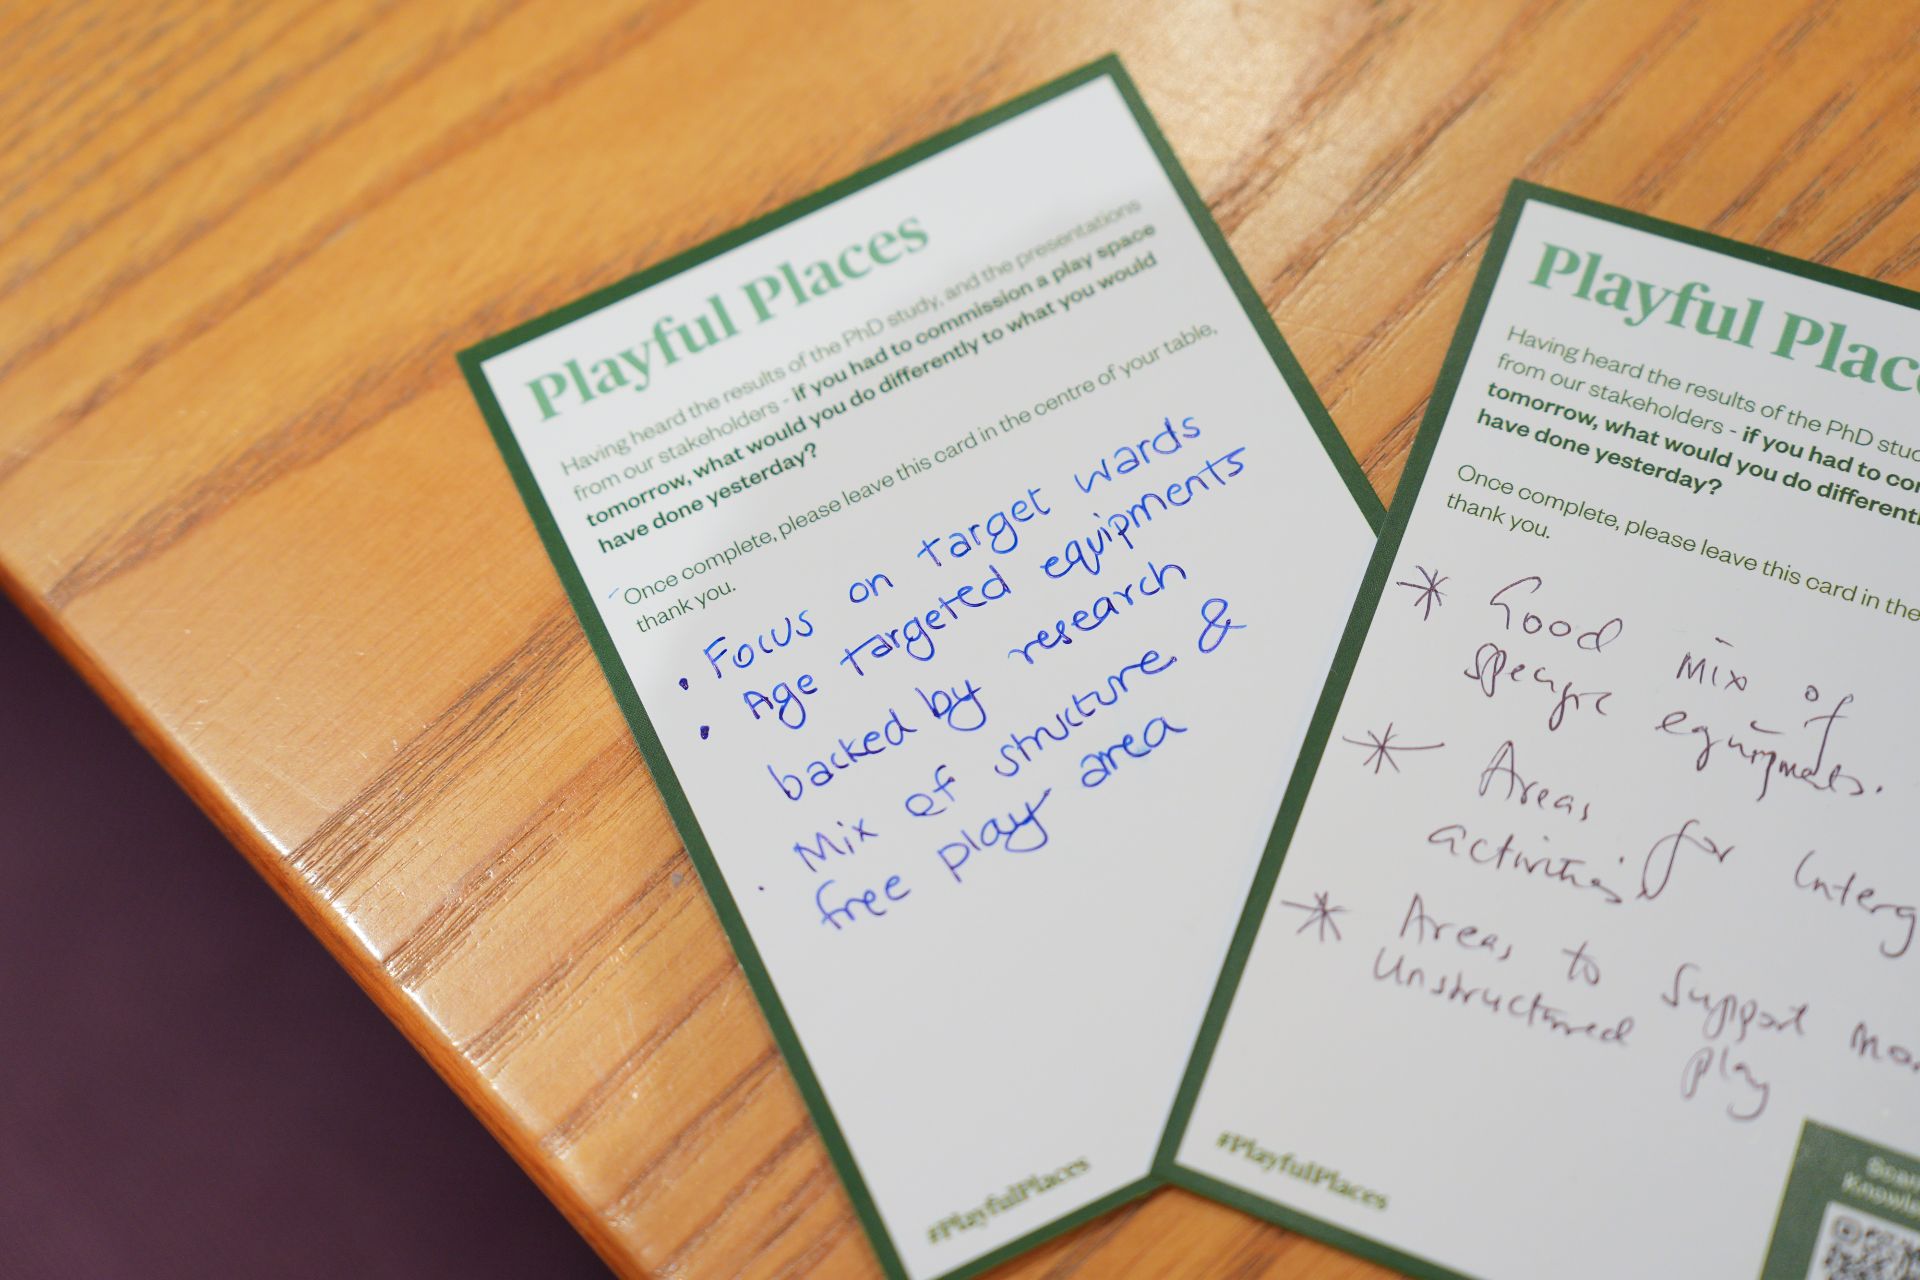 Playful Places
Having heard the results of the PhD study, and the presentations
from our stakeholders - if you had to commission a play space
tomorrow, what would you do differently to what you would
have done yesterday?
Once complete, please leave this card in the centre of your table,
thank you.
• Focus on target wards
• Age targeted equipments
backed by research
• Mix of structure &
free play area
#PlayfulPlaces
Playful Plac
Having heard the results of the PhD stu
from our stakeholders - if you had to co
tomorrow, what would you do different
have done yesterday?
Once complete, please leave this card in the
thank you.
* Good mix of
equipments.
* Areas for Interg
activities
* Areas to support mo
unstructured play
#PlayfulPlaces
Scan
Knowle